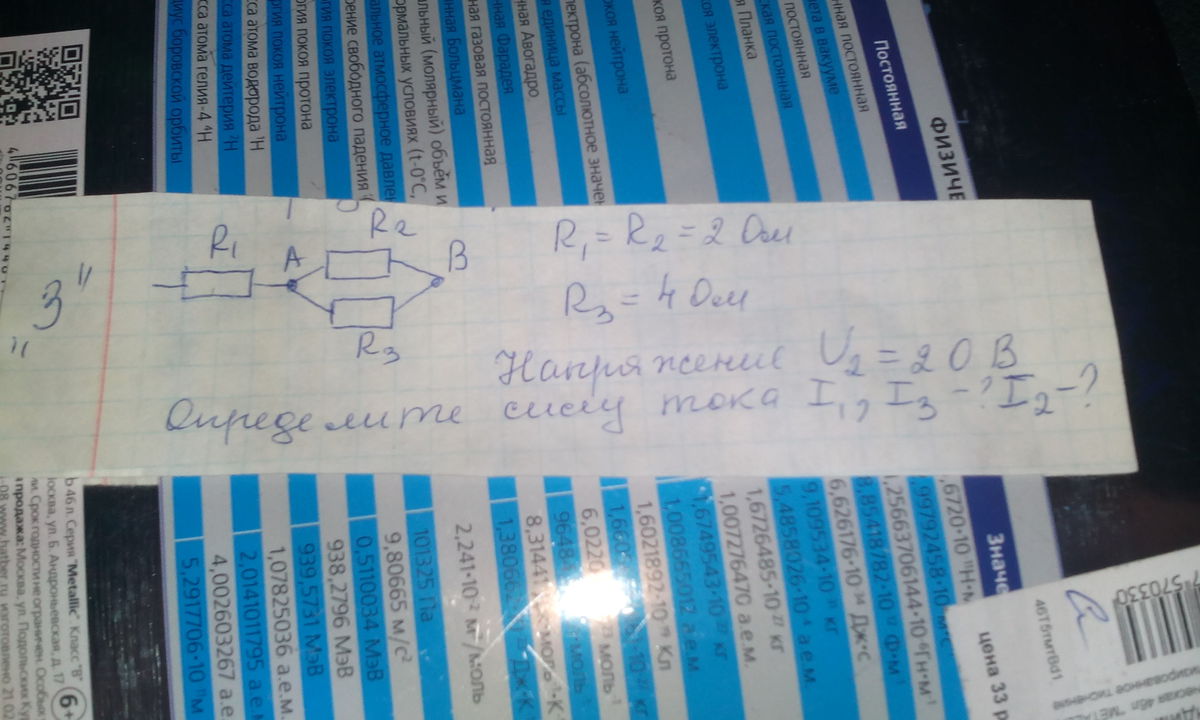 "3"
R1
A
R2
B
R3
R1 = R2 = 2 Ом
R3 = 4 Ом
Напряжение U2 = 20 В
Определите силу тока I1, I3 -? I2 -?
ФИЗИЧЕ
Постоянная
нная постоянная
ета в вакууме
постоянная
ская постоянная
я Планка
коя электрона
коя протона
окоя нейтрона
лектрона (абсолютное значен
я единица массы
ная Авогадро
нная Фарадея
ная газовая постоянная
нная Больцмана
альный (молярный) объём и
ормальных условиях (t-0°C,
альное атмосферное давлен
рение свободного падения (
гия покоя электрона
гия покоя протона
ргия покоя нейтрона
сса атома водорода ¹H
сса атома дейтерия ²H
сса атома гелия-4 ⁴H
диус боровской орбиты
Значе
,6720·10
,99792458·10 м·с
,2566370614
8,85418782·10 Ф·м
6,626176·10 Дж·с
9,109534·10 кг
5,4858026·10 а.е.м.
1,6726485·10 кг
1,007276470 а.е.м.
1,6749543·10 кг
1,008665012 а.е.м.
1,6021892·10 Кл
6,0220
9648
8,3144
1,3806
2,241·10⁻² м³/моль
101325 Па
9,80665 м/с²
0,5110034 МэВ
938,2796 МэВ
939,5731 МэВ
1,07825036 а.е.м.
2,0141011795 а.е.м
4,002603267 а.е.
5,2917706·10⁻¹¹м
ь 46л. Серия "Metallic". Класс "В"
осква, ул. Б. Андроньевская, д. 17
ии. Срок годности не ограничен. Особых
продажа: Москва, ул. Подольских Кур
-08 www.hatber.ru изготовлено 21 02
6+
570330
46Т5тмтВd1
цена 33 р